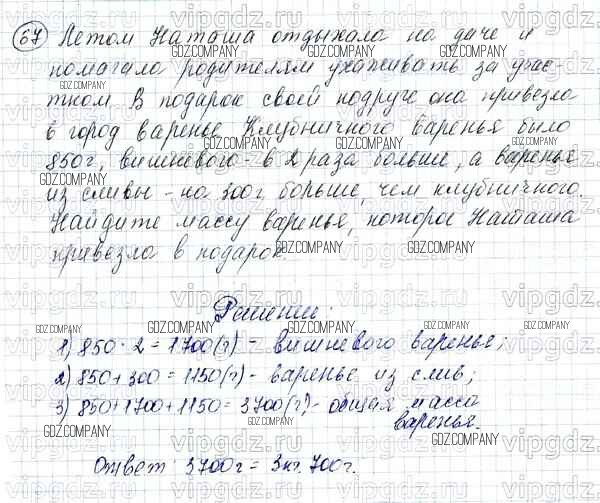 67 Летом Наташа отдыхала на даче и
помогала родителям ухаживать за учас-
тком. В подарок своей подруге она привезла
в город варенье. Клубничного варенья было
850г, вишневого - в 2 раза больше, а варенье
из сливы - на 300г больше, чем клубничного.
Найдите массу варенья, которое Наташа
привезла в подарок.
Решение:
1) 850 · 2 = 1700 (г) - вишневого варенья;
2) 850 + 300 = 1150 (г) - варенье из слив;
3) 850 + 1700 + 1150 = 3700 (г) - общая масса
варенья.
Ответ 3700г = 3кг 700г.
GDZ.COMPANY
vipgdz.ru